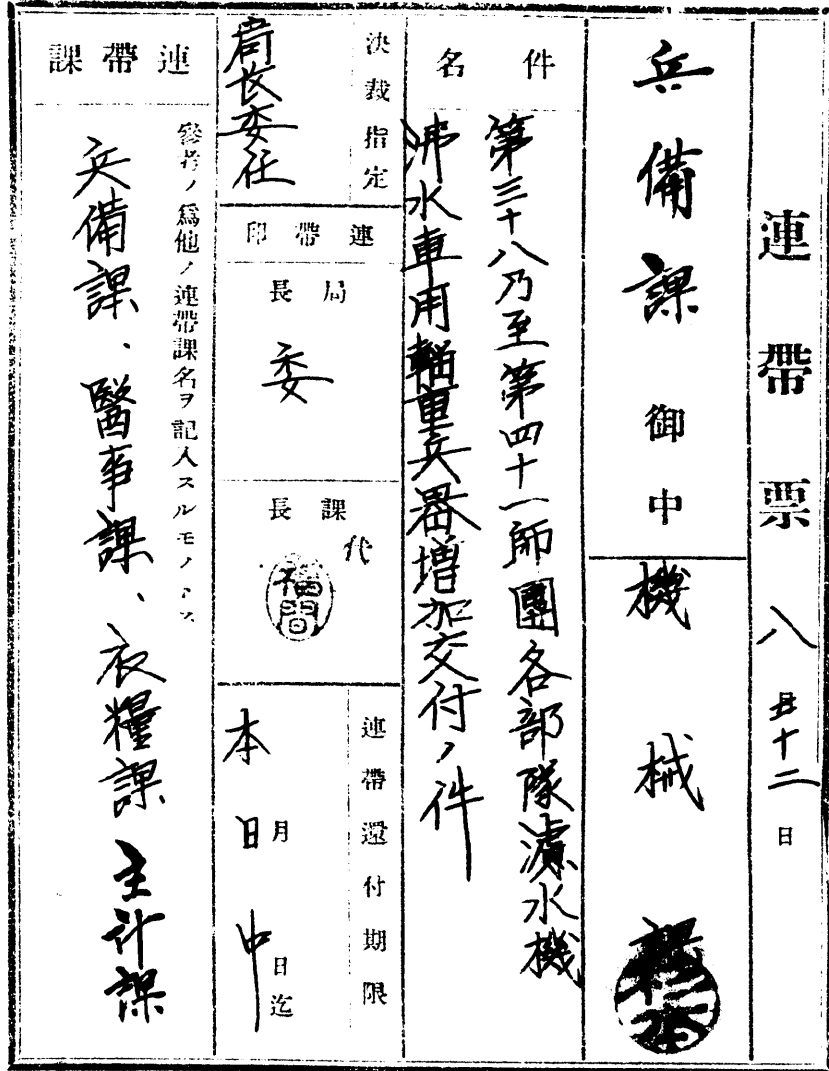 連帶票 八月十二日
兵備課 御中
機械
件名
第三十八乃至第四十一師團各部隊濾水機
沸水車用輜重兵器増加交付ノ件
決裁指定
局長委任
連帶印
局長
委
課長
代
福間
連帶還付期限
本日中
月 日迄
連帶課
參考ノ爲他ノ連帶課名ヲ記入スルモノトス
兵備課、醫事課、衣糧課 主計課